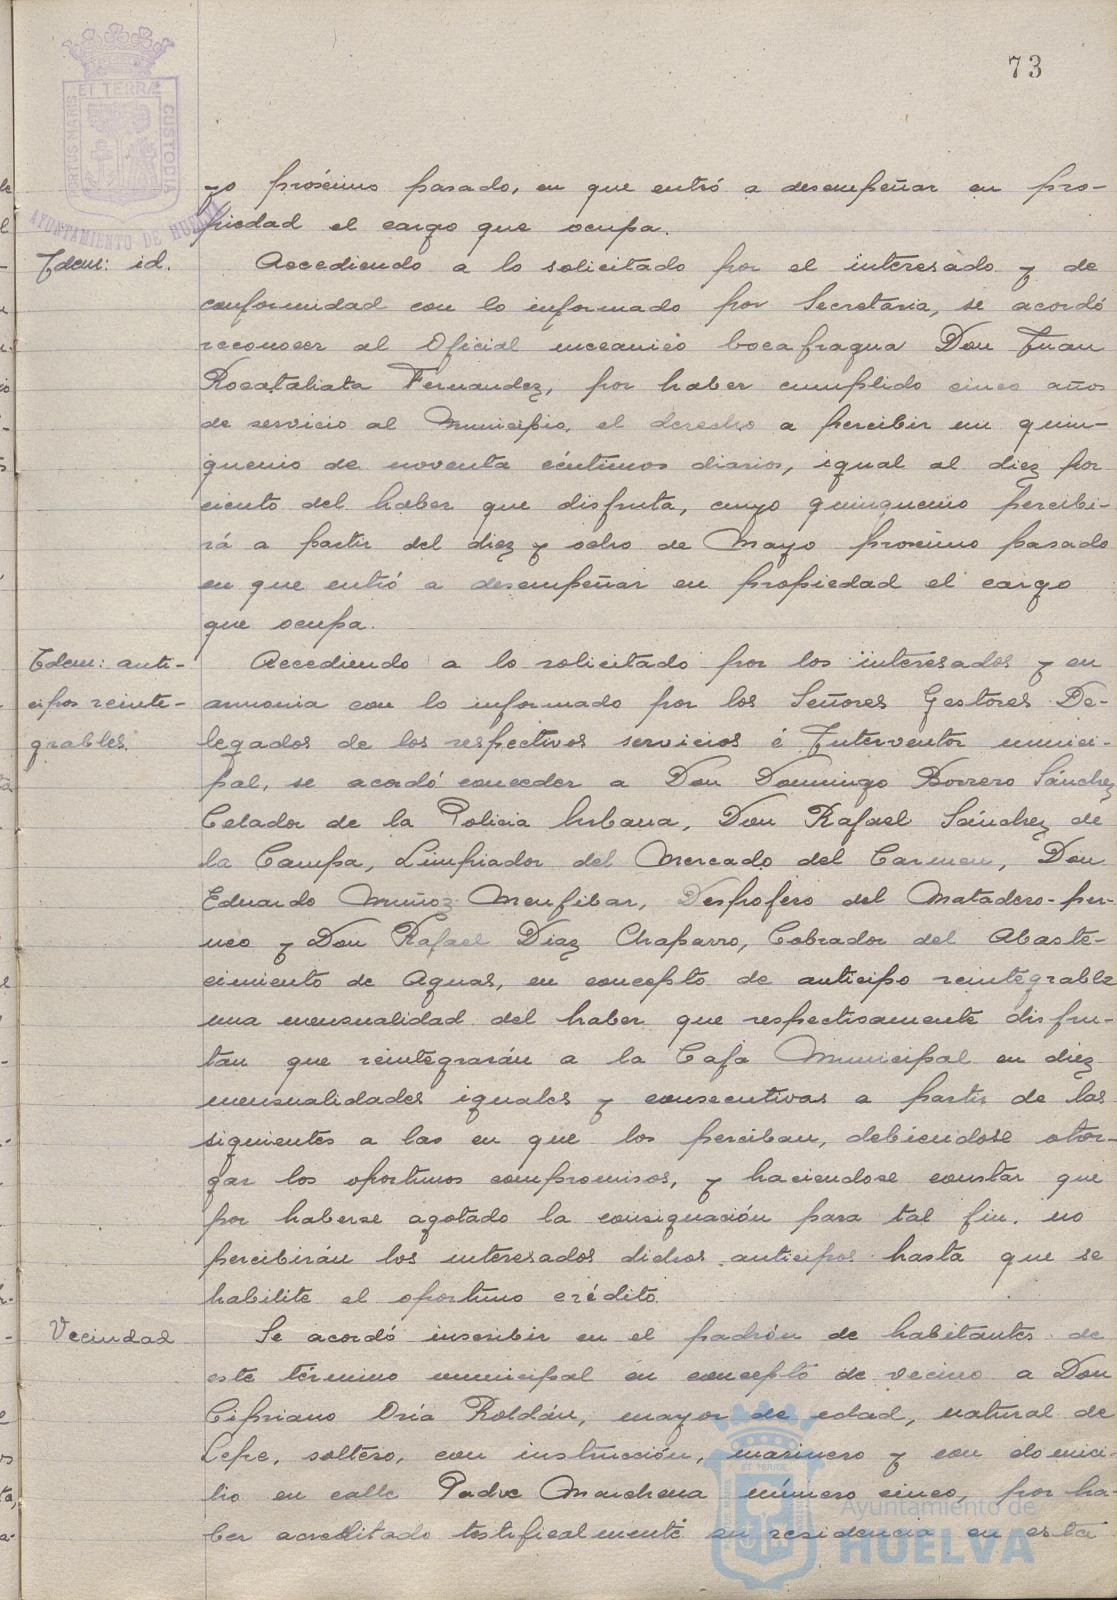 73
PORTUS MARIS ET TERRÆ CUSTODIA
AYUNTAMIENTO DE HUELVA
yo próximo pasado, en que entró a desempeñar en pro-
piedad el cargo que ocupa.
Idem: id.
Accediendo a lo solicitado por el interesado y de
conformidad con lo informado por Secretaría, se acordó
reconocer al Oficial mecanico bocafragua Don Juan
Rocatallata Fernandez, por haber cumplido cinco años
de servicio al Municipio, el derecho a percibir un quin-
quenio de noventa céntimos diarios, igual al diez por
ciento del haber que disfruta, cuyo quinquenio percibi-
rá a partir del diez y ocho de Mayo proximo pasado
en que entró a desempeñar en propiedad el cargo
que ocupa.
Idem: anti-
cipos reinte-
grables.
Accediendo a lo solicitado por los interesados y en
armonia con lo informado por los Señores Gestores De-
legados de los respectivos servicios é Interventor munici-
pal, se acordó conceder a Don Domingo Borrero Sánchez
Celador de la Policia Urbana, Don Rafael Sánchez de
la Campa, Limpiador del Mercado del Carmen, Don
Eduardo Muñoz Menfibar, Despojero del Matadero-per-
neo y Don Rafael Diaz Chaparro, Cobrador del Abaste-
cimiento de Aguas, en concepto de anticipo reintegrable
una mensualidad del haber que respectivamente disfru-
tan que reintegrarán a la Caja Municipal en diez
mensualidades iguales y consecutivas a partir de las
siguientes a las en que los perciban, debiendose otor-
gar los oportunos compromisos, y haciendose constar que
por haberse agotado la consignación para tal fin, no
percibirán los interesados dichos anticipos hasta que se
habilite el oportuno crédito.
Vecindad
Se acordó inscribir en el padrón de habitantes de
este término municipal en concepto de vecino a Don
Cipriano Oria Roldán, mayor de edad, natural de
Lepe, soltero, con instrucción, marinero y con domici-
lio en calle Padre Marchena número cinco, por ha-
ber acreditado testificalmente su residencia en esta
Ayuntamiento de
HUELVA